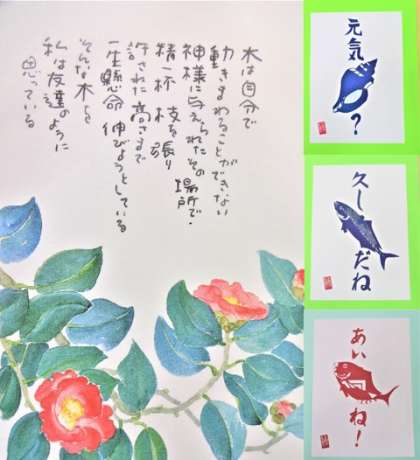 木は自分で
動きまわることができない
神様に与えられたその場所で
精一杯 枝を張り
許された高さまで
一生懸命 伸びようとしている
そんな木を
私は友達のように
思っている
元気?
久しだね
あいね!